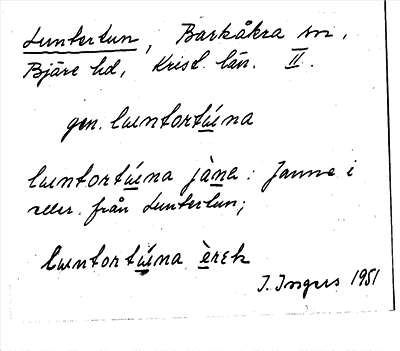 Luntertun, Barkåkra sn,
Bjäre hd, Krist. län. II.
gen. luntortúna
luntortúna jàna: Janne i
eller från Luntertun;
luntortúna èrek
I. Ingers 1951